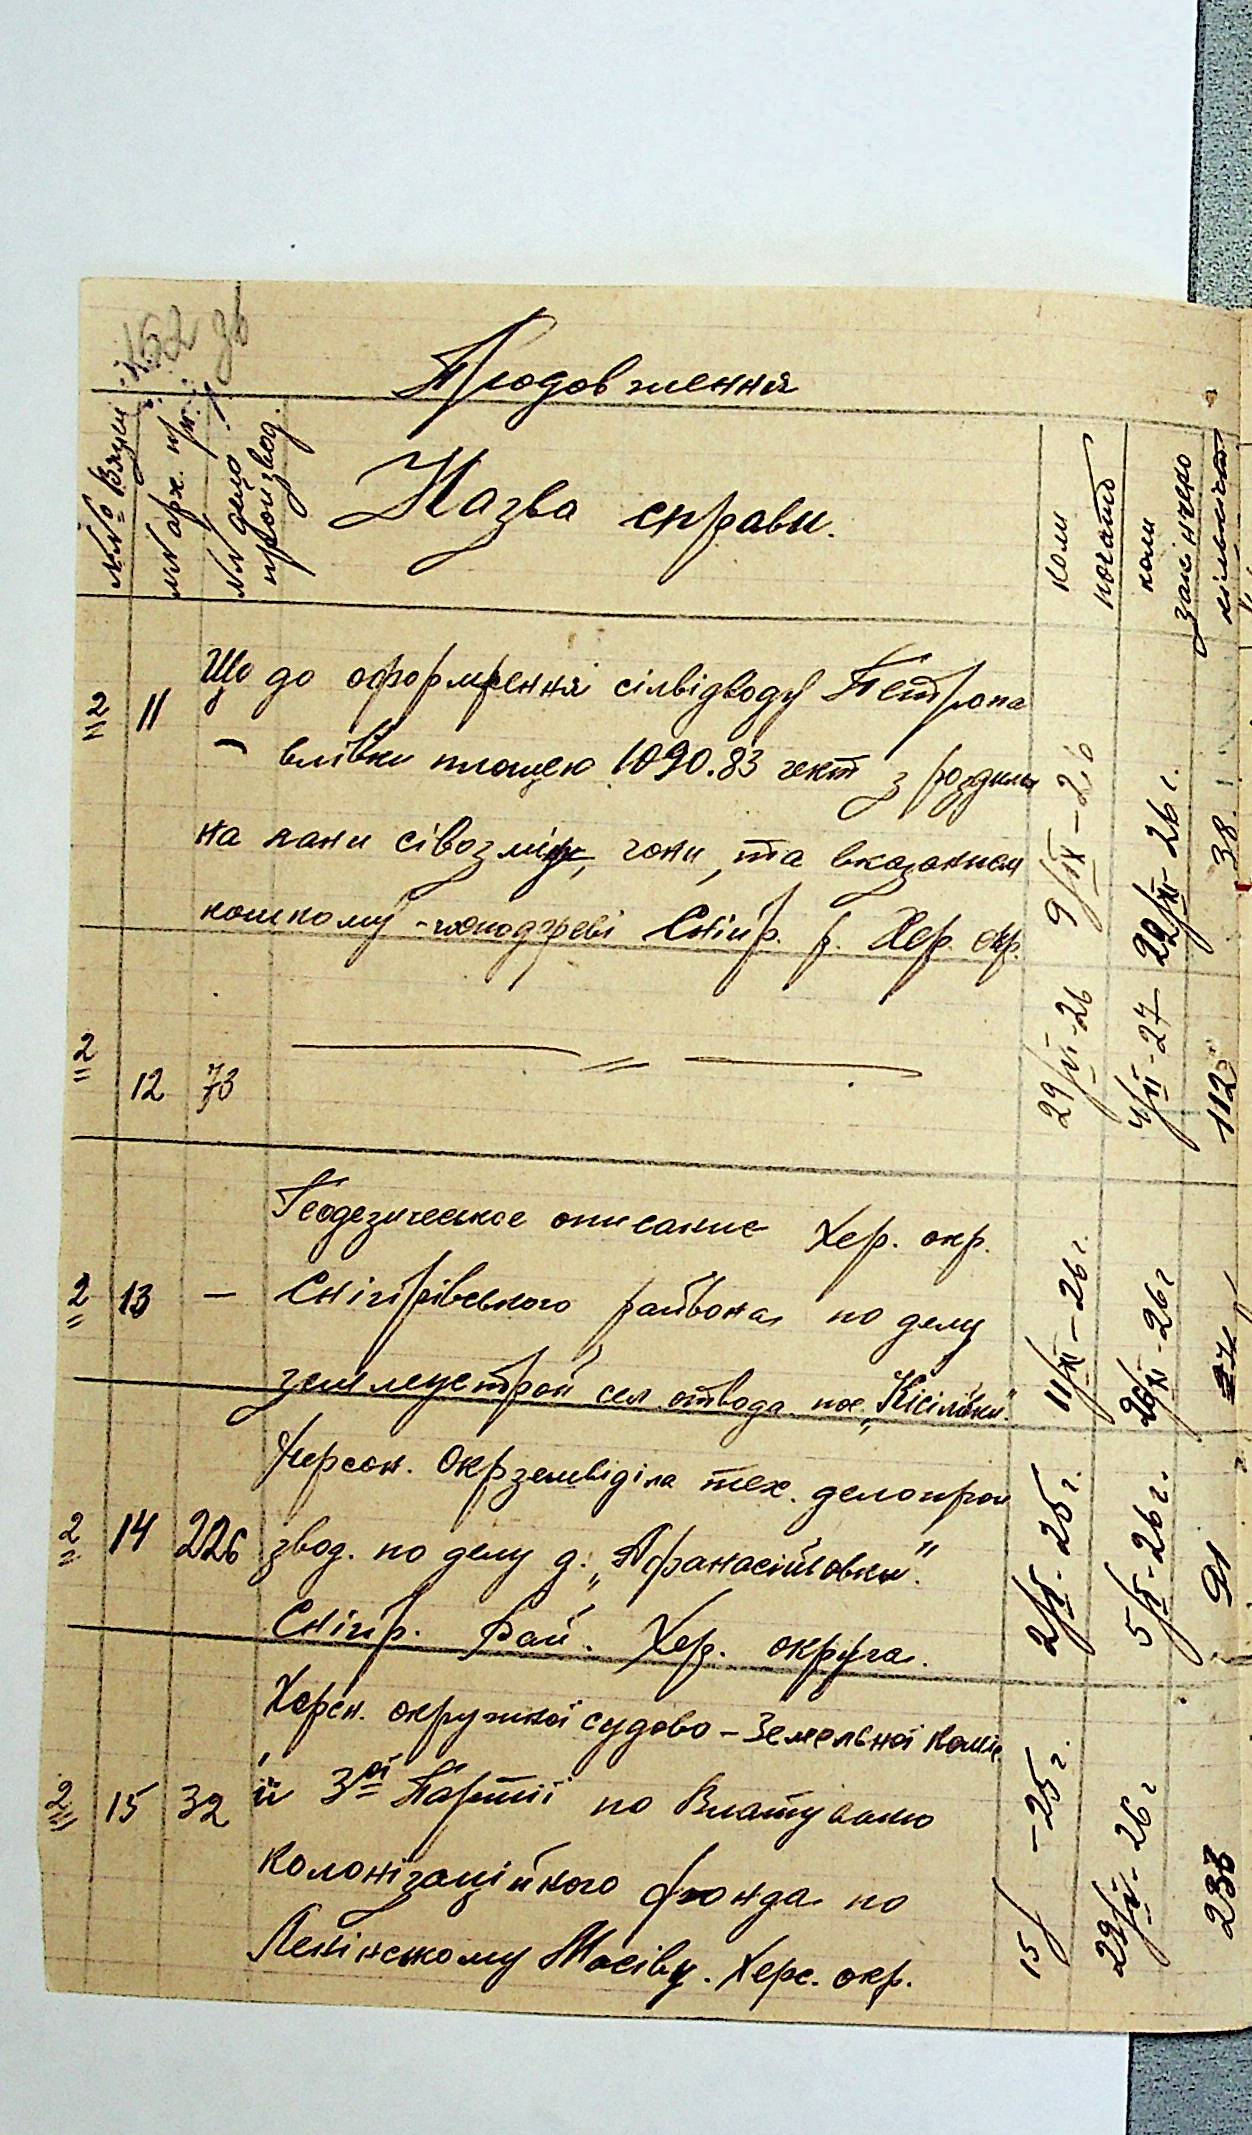 152 зв
Продовження
№№ Вязки
№№ арх.
№№ дело
произвед.
Назва справи.
коли
почато
коли
закінчено
2 11 Що до оформлення сілвідводу Петропа
– влівки площею 1090.83 гект з розділи
на лани сівозміну, гони, та вказаним
Снігір. р. Хер. окр.
9/IX – 26
22/XI – 26 г.
38.
2 12 73 — " —
29/VI – 26
4/II – 27
112
2 13 — Геодезическое описание Хер. окр.
Снігірівського райвона по делу
землеустрой сел. отвода пос. „Кісілівки".
11/XI – 26 г.
26/XI – 26 г
27
2 14 226 Херсон. Окрземвіділа тех. делопрои
звод. по делу д. „Афанасіївовки".
Снігір. Рай. Хер. округа.
2/VI – 25 г.
5/VI – 26 г.
91
2 15 32 Херсн. окружної судово – Земельної Коміс
ій 3ої Партії по Влатуванню
Колонізаційного фонда по
Ленінському Масіву. Херс. окр.
15/ – 25 г.
29/IV – 26 г
238